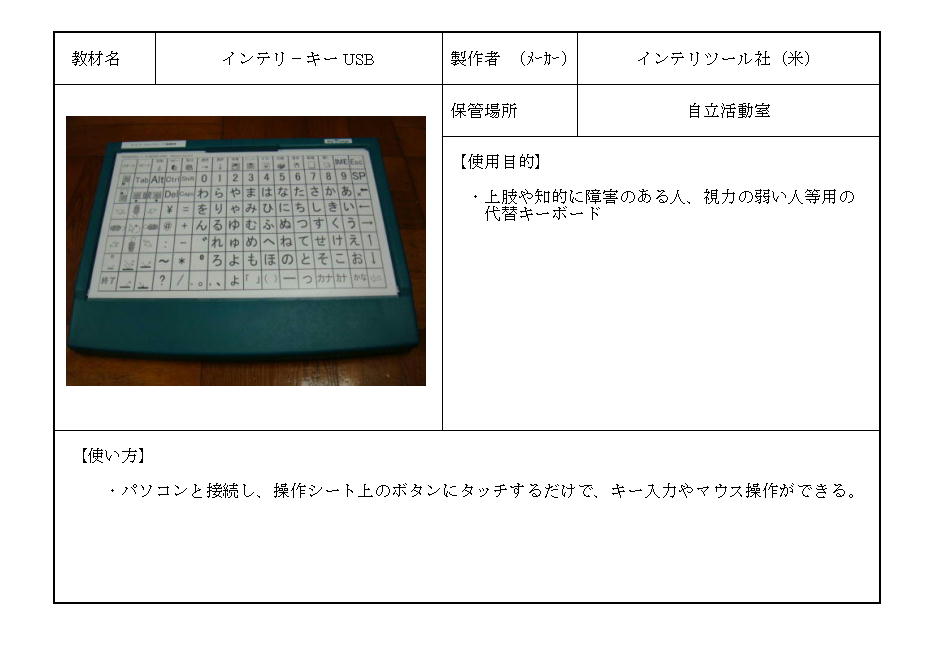 教材名
インテリ－キーUSB
製作者 （ﾒｰｶｰ）
インテリツール社（米）
保管場所
自立活動室
【使用目的】
・上肢や知的に障害のある人、視力の弱い人等用の
代替キーボード
Tab Alt Ctrl Shift 0 1 2 3 4 5 6 7 8 9 SP
Del Caps わ ら や ま は な た さ か あ ←
¥ = を り ゃ み ひ に ち し き い ←
@ + ん る ゆ む ふ ぬ つ す く う →
: - ゛ れ ゅ め へ ね て せ け え ↑
～ * ゜ ろ よ も ほ の と そ こ お ↓
終了 ? / 。 、 ょ 「」 （） ー っ カナ
【使い方】
・パソコンと接続し、操作シート上のボタンにタッチするだけで、キー入力やマウス操作ができる。